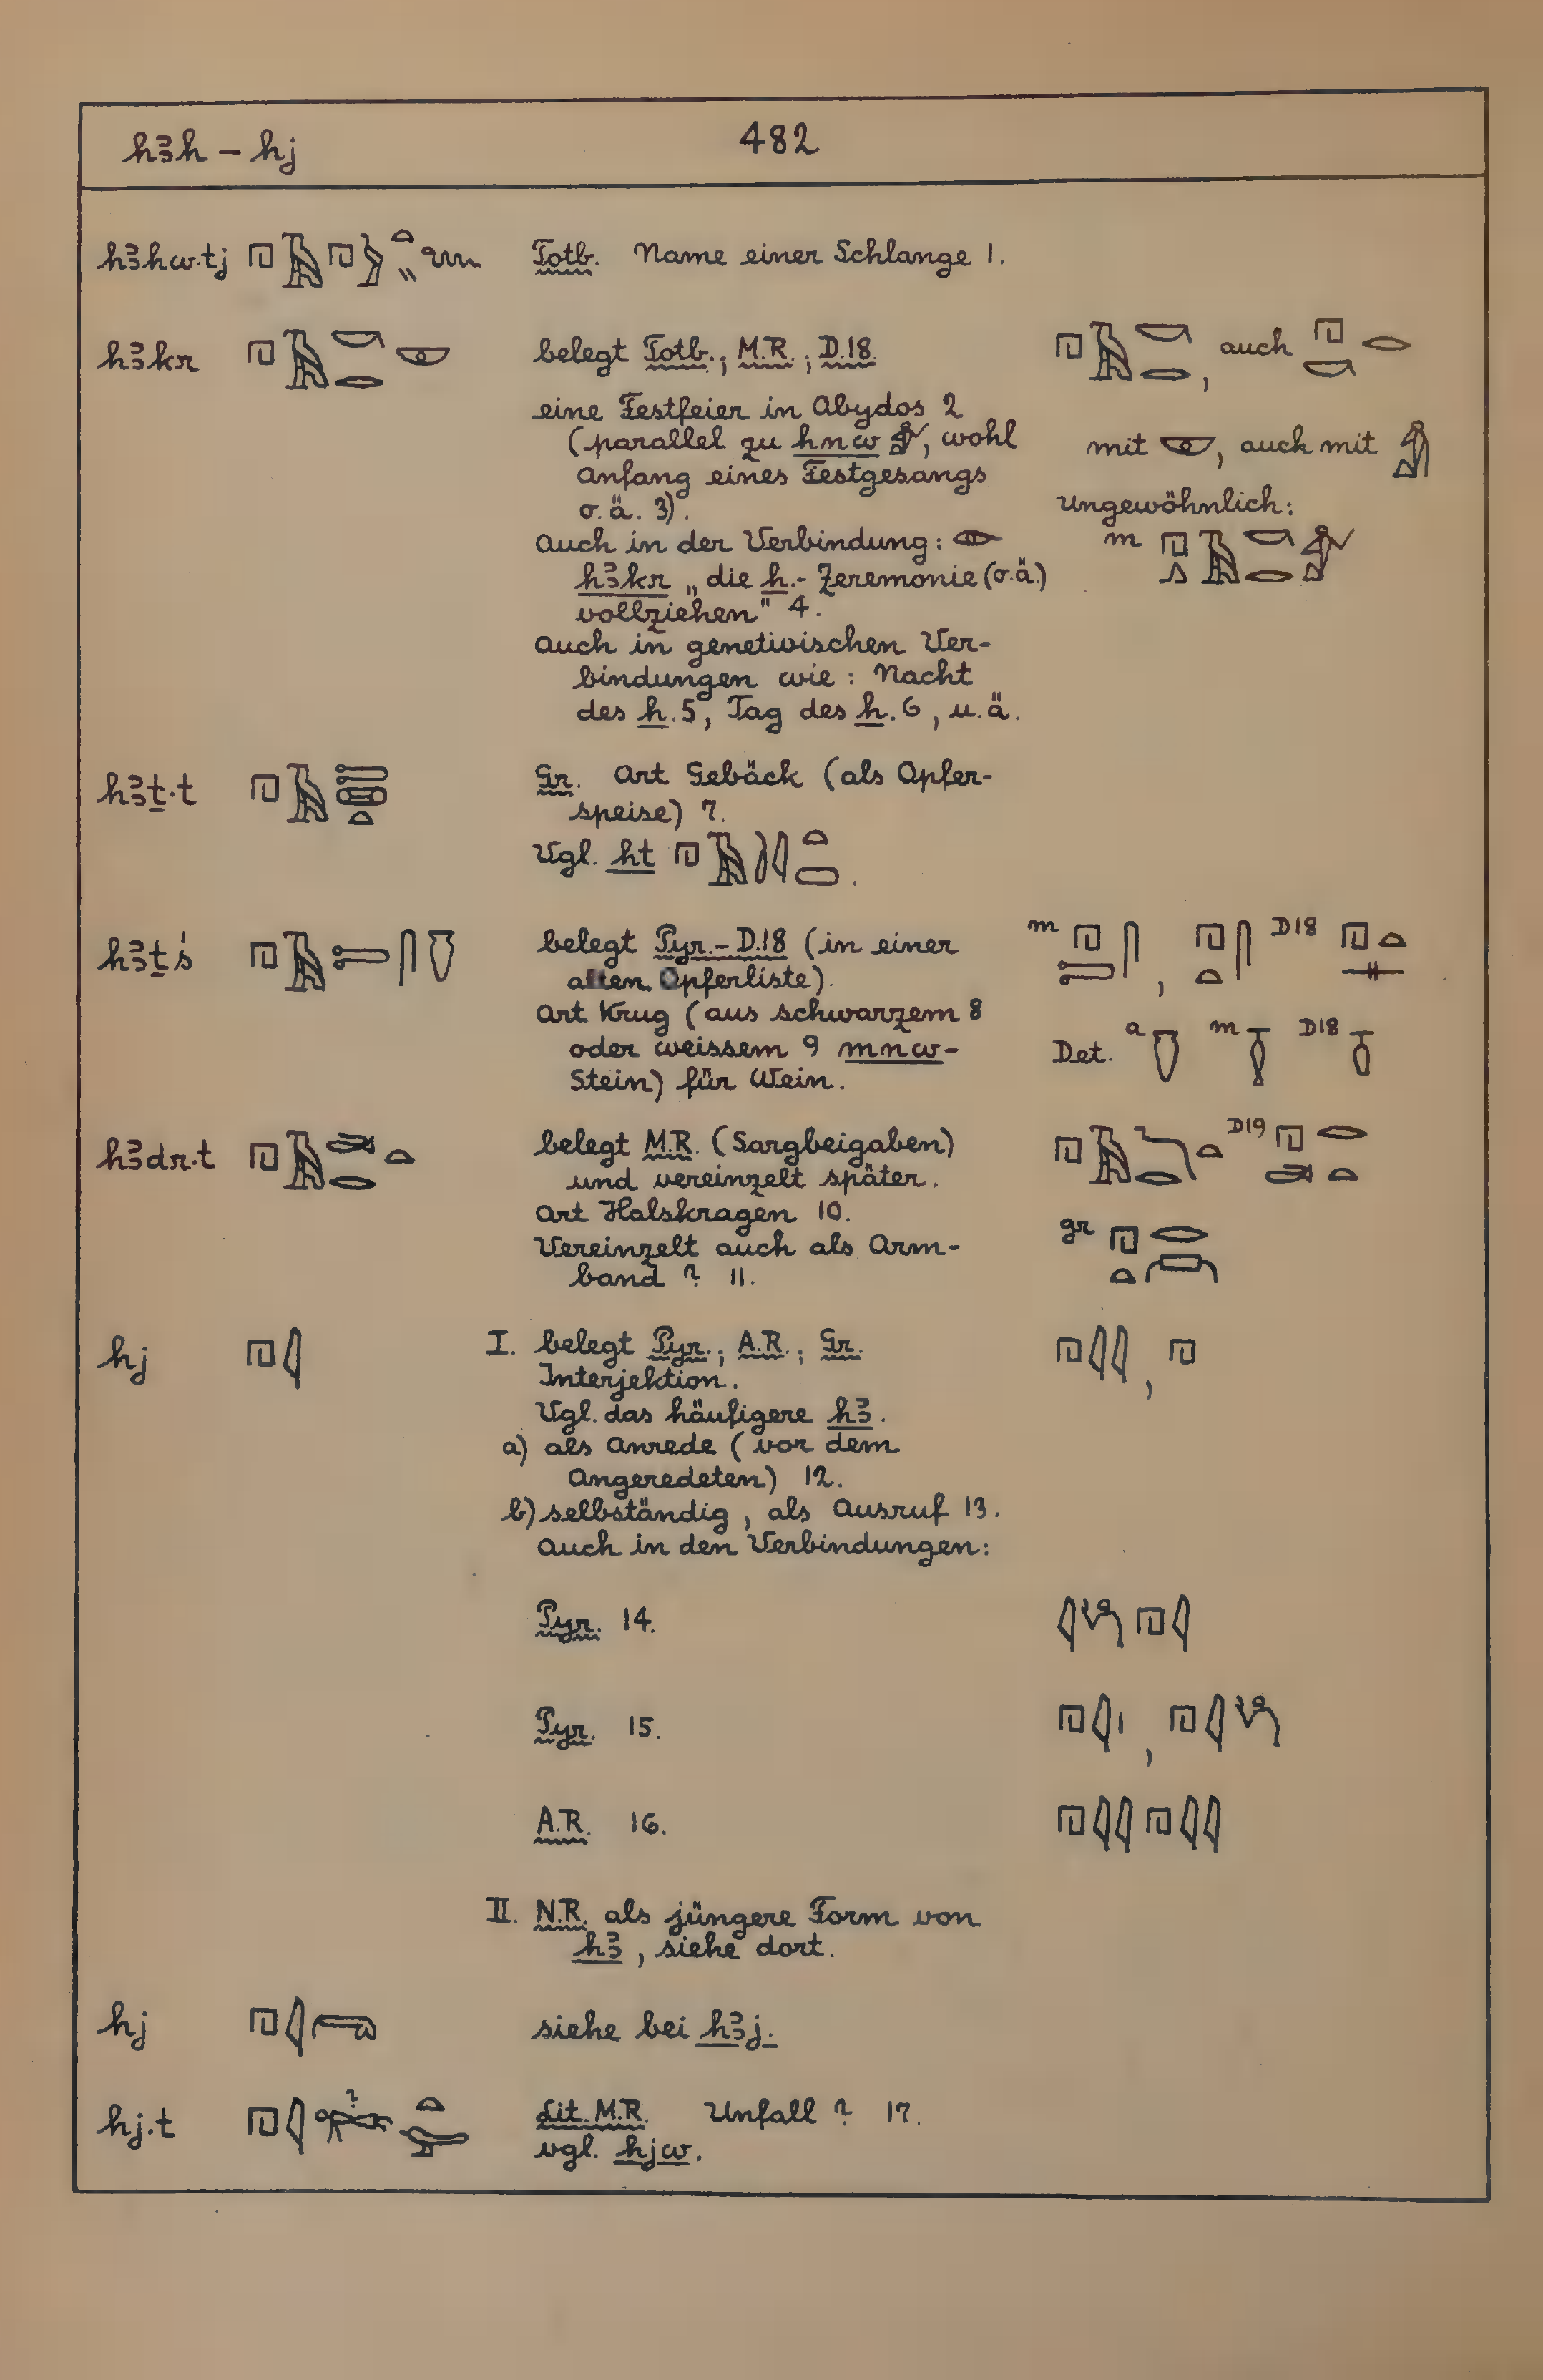 hꜣh – hj
482
hꜣhw.tj Totb. Name einer Schlange 1.
hꜣkr belegt Totb.; M.R.; D.18. , auch
eine Festfeier in Abydos 2
(parallel zu hnw , wohl mit , auch mit
Anfang eines Festgesangs
o.ä. 3). Ungewöhnlich:
Auch in der Verbindung: m
hꜣkr „die h.-Zeremonie (o.ä.)
vollziehen" 4.
Auch in genetivischen Ver-
bindungen wie: Nacht
des h. 5, Tag des h. 6, u.ä.
hꜣṯ.t Gr. Art Gebäck (als Opfer-
speise) 7.
Vgl. ht .
hꜣṯś belegt Pyr.-D.18 (in einer m , D18
alten Opferliste).
Art Krug (aus schwarzem 8
oder weissem 9 mnw- Det. a m D18
Stein) für Wein.
hꜣdr.t belegt M.R. (Sargbeigaben) D19
und vereinzelt später.
Art Halskragen 10.
Vereinzelt auch als Arm- gr
band ? 11.
hj I. belegt Pyr.; A.R.; Gr. ,
Interjektion.
Vgl. das häufigere hꜣ.
a) als Anrede (vor dem
Angeredeten) 12.
b) selbständig, als Ausruf 13.
Auch in den Verbindungen:
Pyr. 14.
Pyr. 15. ,
A.R. 16.
II. N.R. als jüngere Form von
hꜣ, siehe dort.
hj siehe bei hꜣj.
hj.t ? Lit. M.R. Unfall ? 17.
vgl. hjw.